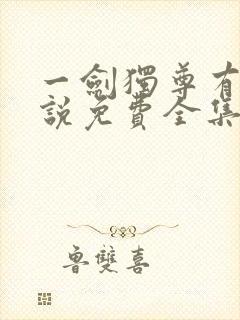 一劍獨尊有
說免費全集
魯雙喜